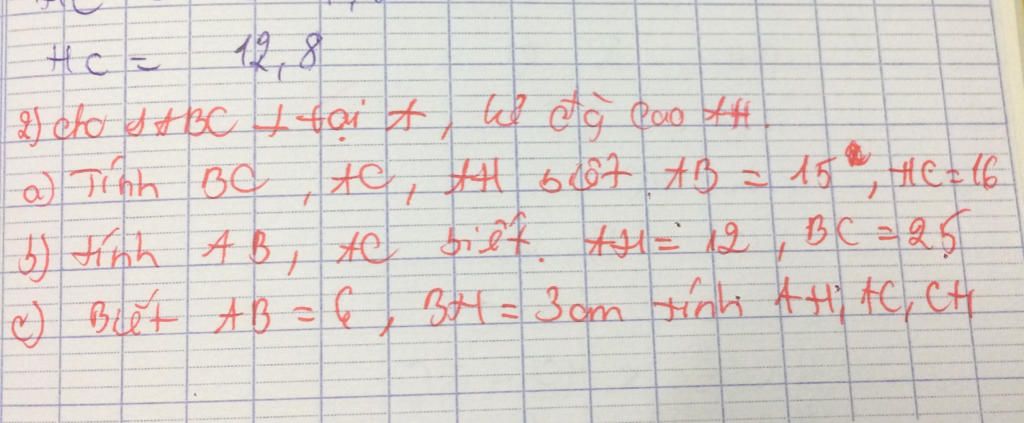 HC = 12,8
2) cho △ABC ⊥ tại A, kẻ đg cao AH.
a) Tính BC, AC, AH biết AB = 15, HC = 16
b) tính AB, AC biết. AH = 12, BC = 25
c) Biết AB = 6, BH = 3cm tính AH, AC, CH